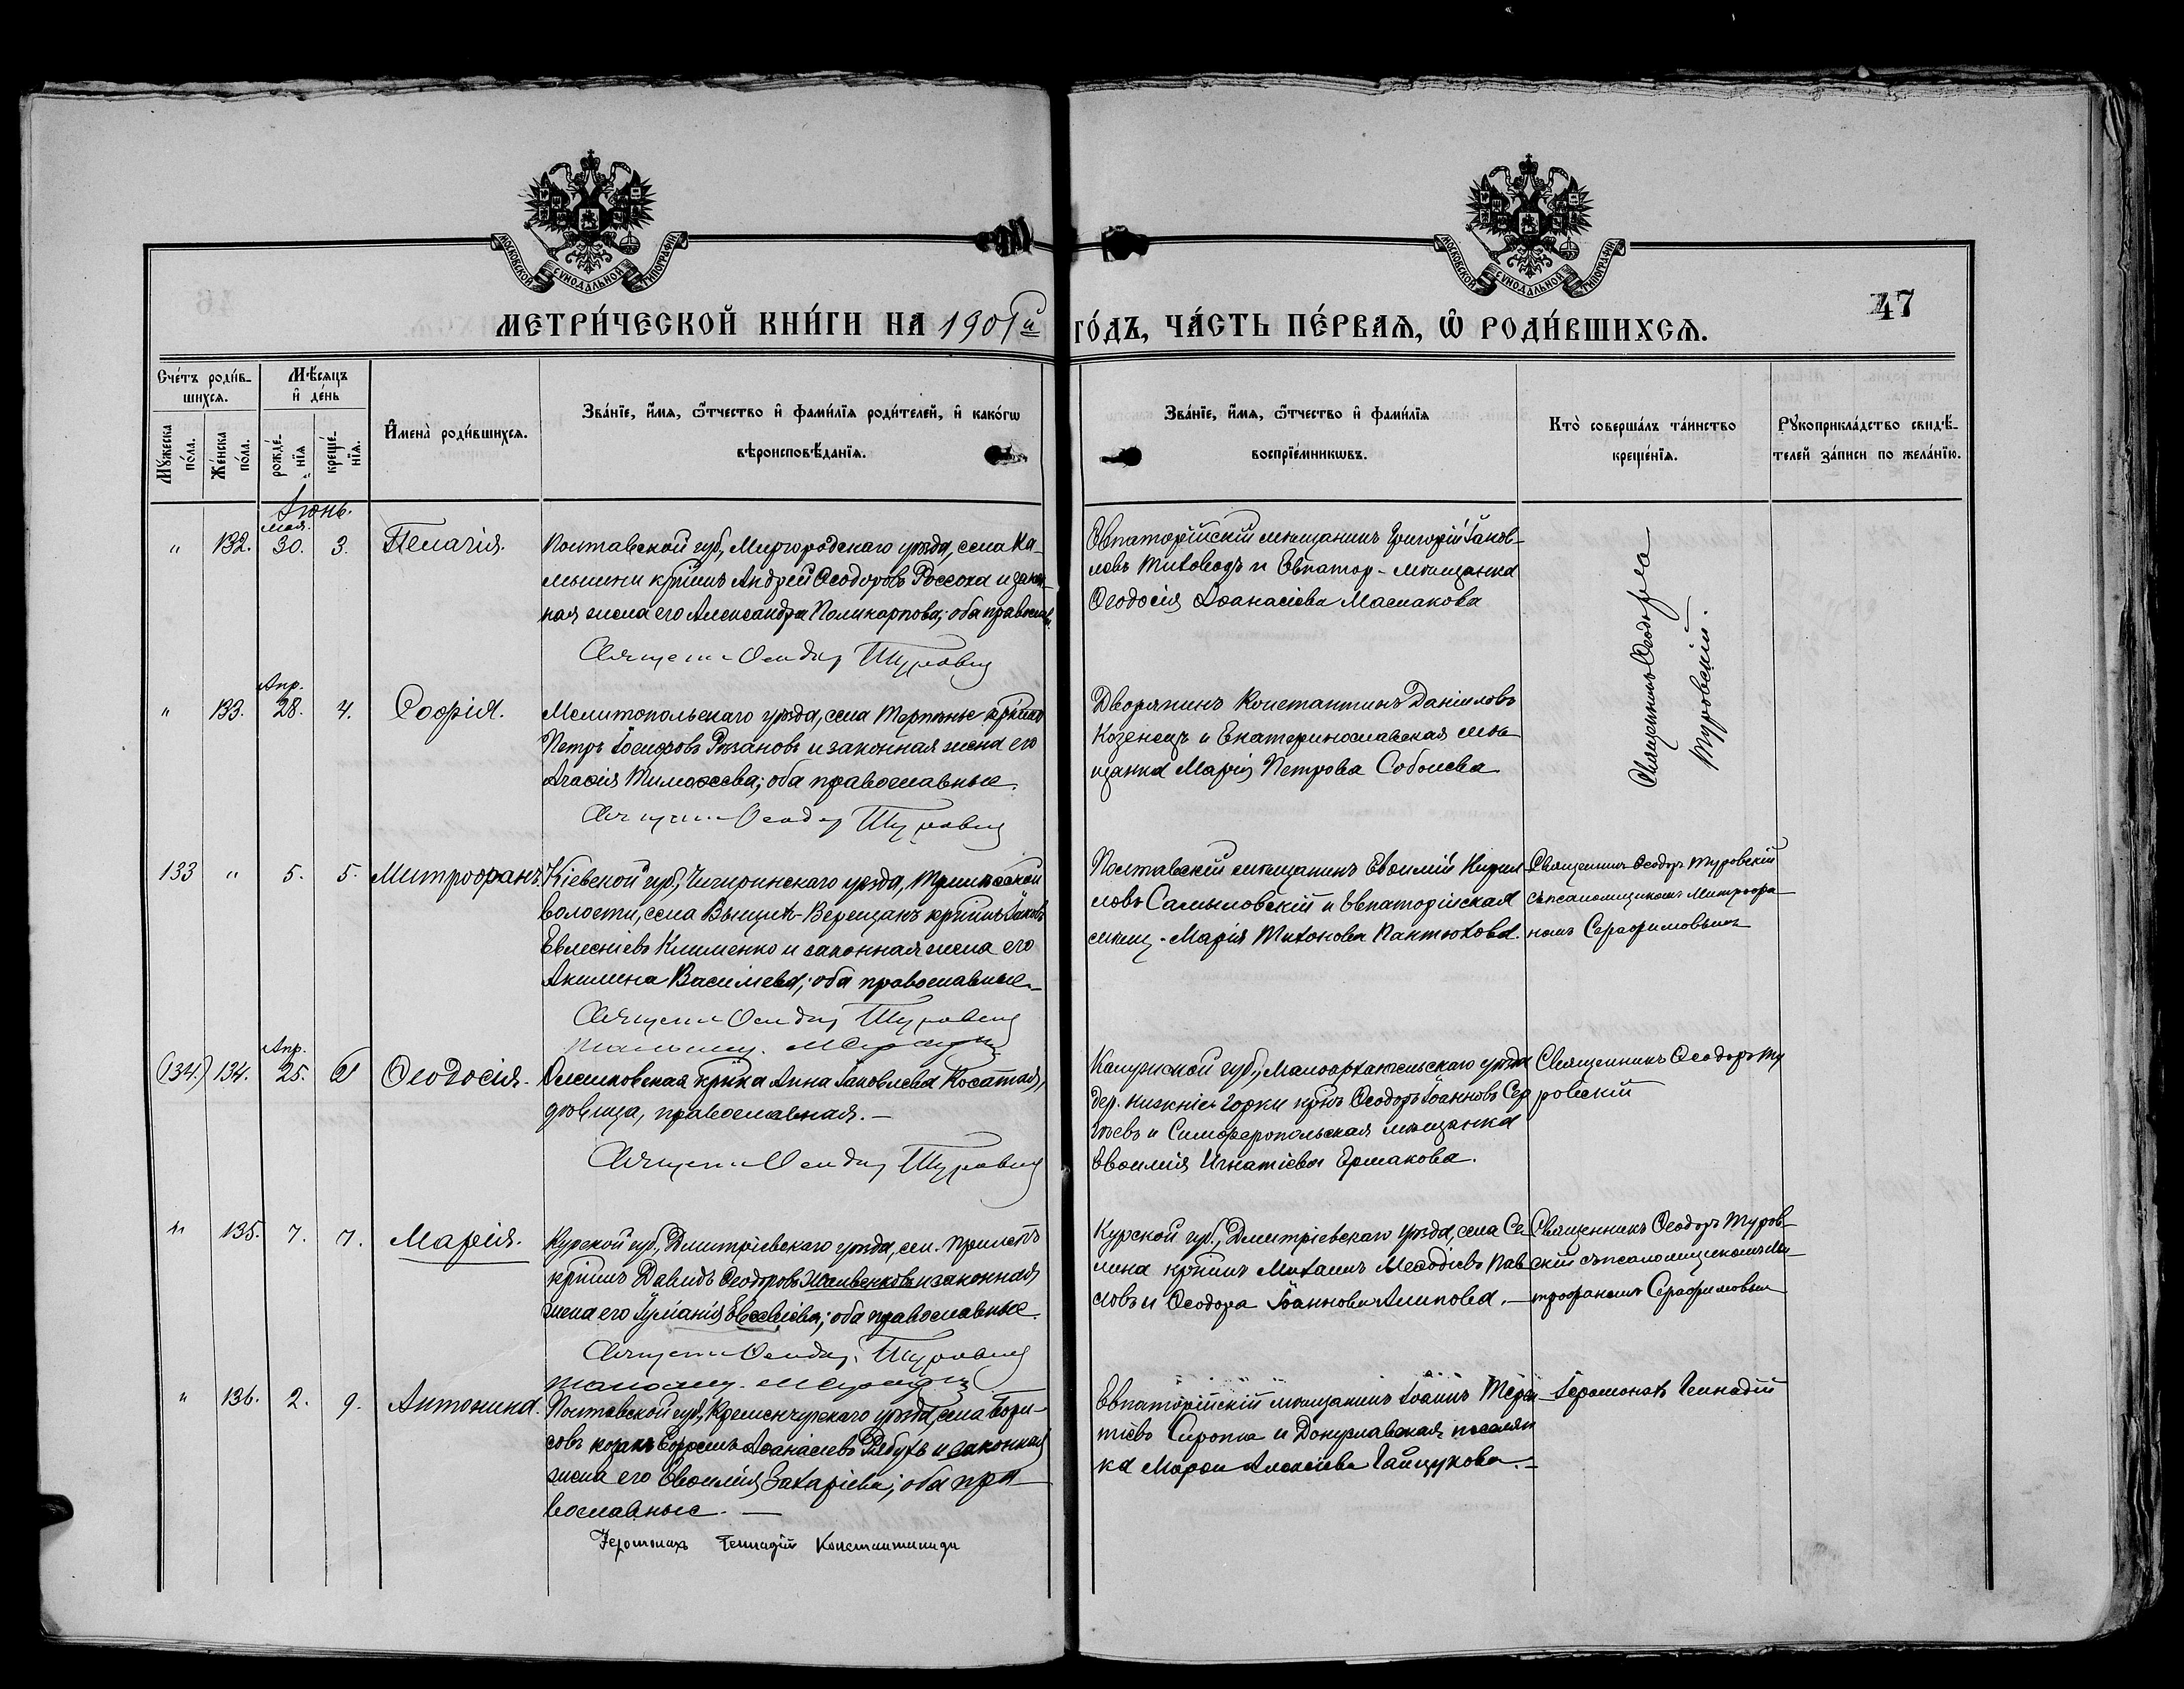 МОСКОВСКОЙ СѴНОДАЛЬНОЙ ТИПОГРАФІИ
МОСКОВСКОЙ СѴНОДАЛЬНОЙ ТИПОГРАФІИ
МЕТРИ́ЧЕСКОЙ КНИ́ГИ НА 1901й ГО́ДЪ, ЧА́СТЬ ПЕ́РВАѦ, Ѡ҆ РОДИ́ВШИХСѦ.
47
Сче́тъ роди́в-
шихсѧ.
Мѣ́сѧцъ
и҆ де́нь
Мꙋ́жеска
по́ла.
Же́нска
по́ла.
рожде́-
нїѧ
креще́-
нїѧ.
И҆мена̀ роди́вшихсѧ.
Зва́нїе, и҆́мѧ, ѻ҆́тчество и҆ фами́лїѧ роди́телей, и҆ како́гѡ
вѣроисповѣ́данїѧ.
Зва́нїе, и҆́мѧ, ѻ҆́тчество и҆ фами́лїѧ
воспрїе́мникѡвъ.
Кто̀ соверша́лъ та́инство
креще́нїѧ.
Рꙋкоприкла́дство свидѣ́-
телей за́писи по жела́нїю.
Іюнь.
мая.
„ 132. 30. 3. Пелагія.
Полтавской губ., Миргородскаго уѣзда, села Ка-
мышни кр̃нинъ Андрей Ѳеодоровъ Россоха и закон-
ная жена его Александра Поликарпова; оба православн.
Священ. Ѳеодор Туровскій
Евпаторійскій мѣщанинъ Григорій Іаков-
левъ Тиховодъ и Евпатор- мѣщанка
Ѳеодосія Аѳанасіева Маслакова
Священникъ Ѳеодоръ
Туровскій.
Апр.
„ 133. 28. 4. Софія.
Мелитопольскаго уѣзда, села Терпѣнье кр̃нинъ
Петръ Іосифовъ Рязановъ и законная жена его
Агафія Тимофеева; оба православные.
Священ. Ѳеодор Туровскій
Дворянинъ Константинъ Даніиловъ
Козенецъ и Екатеринославская мѣ-
щанка Марія Петрова Соболева
133 „ 5. 5. Митрофанъ.
Кіевской губ., Чигиринскаго уѣзда, Трилѣсской
волости, села Вищихъ-Верещакъ кр̃нинъ Іаковъ
Клименко и законная жена его
Акилина Василіева; оба православные.
Священ. Ѳеодор Туровскій
Псаломщ. М. Серафим
Полтавскій мѣщанинъ Евѳимій Кирил-
ловъ Самыловскій и Евпаторійская
мѣщ. Марія Тихонова Пантюхова.
Священникъ Ѳеодоръ Туровскій
съ псаломщикомъ Митрофа-
номъ Серафимовымъ
Апр.
(134.) 134. 25. 6 Ѳеодосія.
Олешковская кр̃нка Анна Іаковлева Косатая,
дѣвица, православная.—
Священ. Ѳеодор Туровскій
Калужской губ., Малоархангельскаго уѣзда
дер. Нижніе Горки кр̃нъ Ѳеодоръ Іоанновъ Сер
гѣевъ и Симферопольская мѣщанка
Евѳимія Игнатіева Ермакова.
Священникъ Ѳеодоръ Ту
ровскій
„ 135. 7. 7. Марія.
Курской губ., Дмитріевскаго уѣзда, сел. Прилепъ
кр̃нинъ Давидъ Ѳеодоровъ и законная
жена его Іуліанія Евсевіева; оба православные.
Священ. Ѳеодор Туровскій
Псаломщ. М. Серафим
Курской губ., Дмитріевскаго уѣзда, села Се-
лина кр̃нинъ Михаилъ Меѳодіевъ Пав
ловъ и Ѳеодора Іоаннова Алипова.—
Священникъ Ѳеодоръ Туров-
скій съ псаломщикомъ Ми-
трофаномъ Серафимовым
„ 136. 2. 9. Антонина.
Полтавской губ., Кременчугскаго уѣзда, села Бори-
совъ козакъ Ефремъ Аѳанасіевъ Рябухъ и законная
жена его Евѳимія Захаріева; оба пра-
вославные.—
Іеромонахъ Геннадій Константиниди
Евпаторійскій мѣщанинъ Іоаннъ Терен-
тіевъ Сиропка и Донузлавская поселян
ка Марѳа Алексіева Гайщукова.—
Іеромонахъ Геннадій